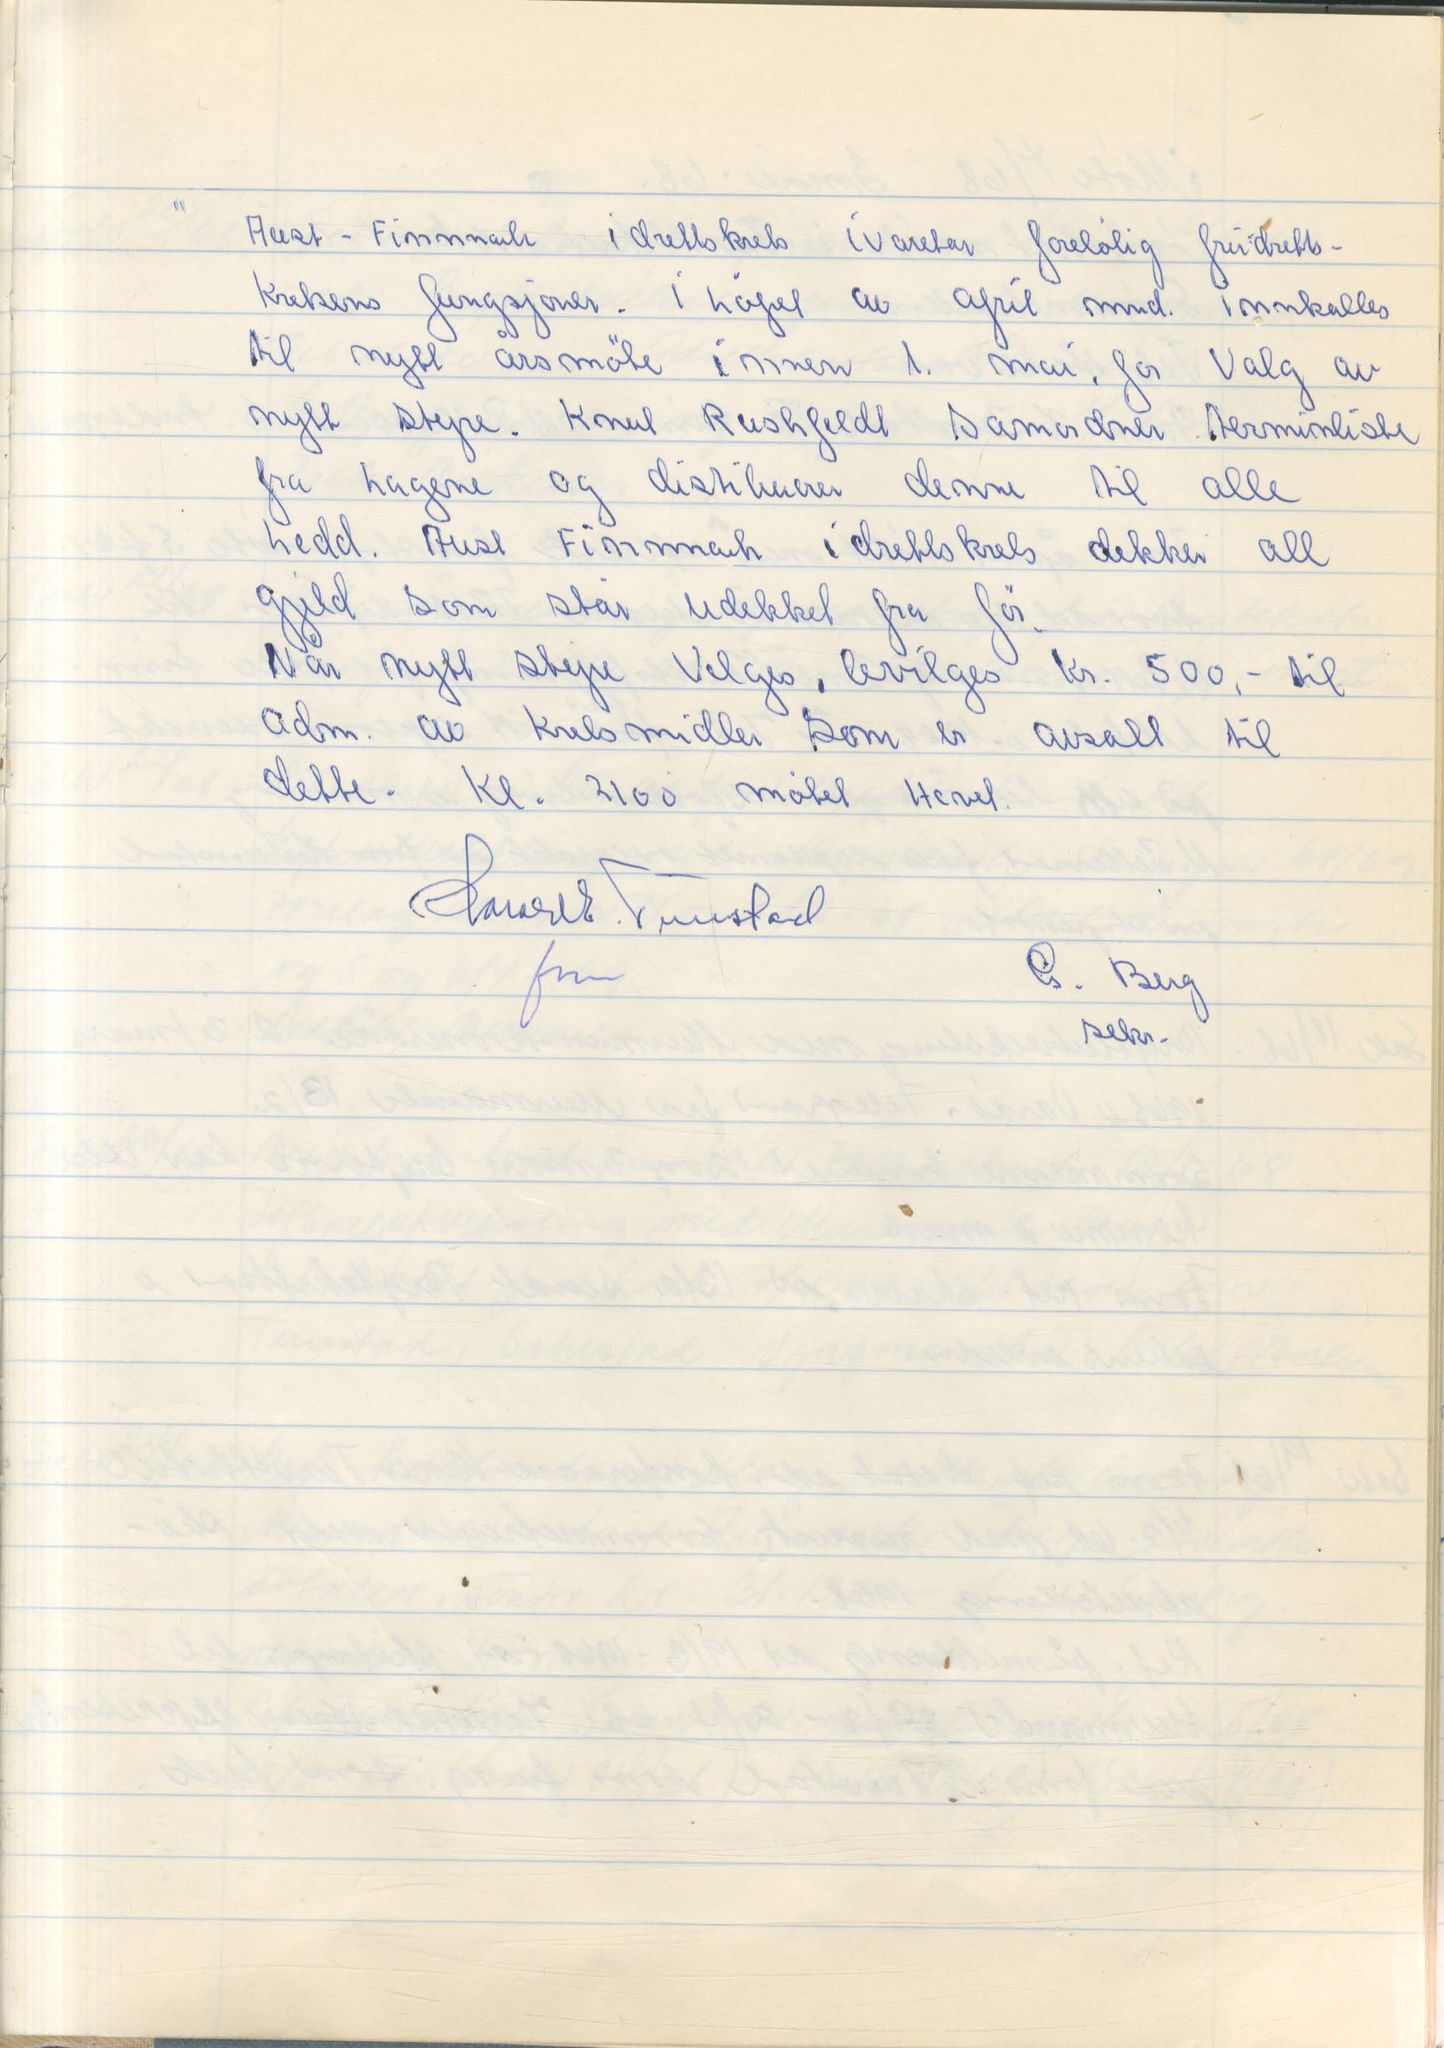 " Aust-Finnmark idrettskrets ivaretar forelölig friidretts-
kretsens fungsjoner. I löpet av april mnd. innkalles
til nytt årsmöte innen 1. mai, for valg av
nytt styre. Knut Rushfeldt samordner terminliste
fra lagene og distibuerer denne til alle
ledd. Aust Finnmark idrettskrets dekker all
gjeld som står udekket fra för.
Når nytt styre velges, bevilges kr. 500,- til
adm. av kretsmidler som er avsatt til
dette. Kl. 2100 mötet hevet.
Tunstad
fm
G. Berg
sekr.